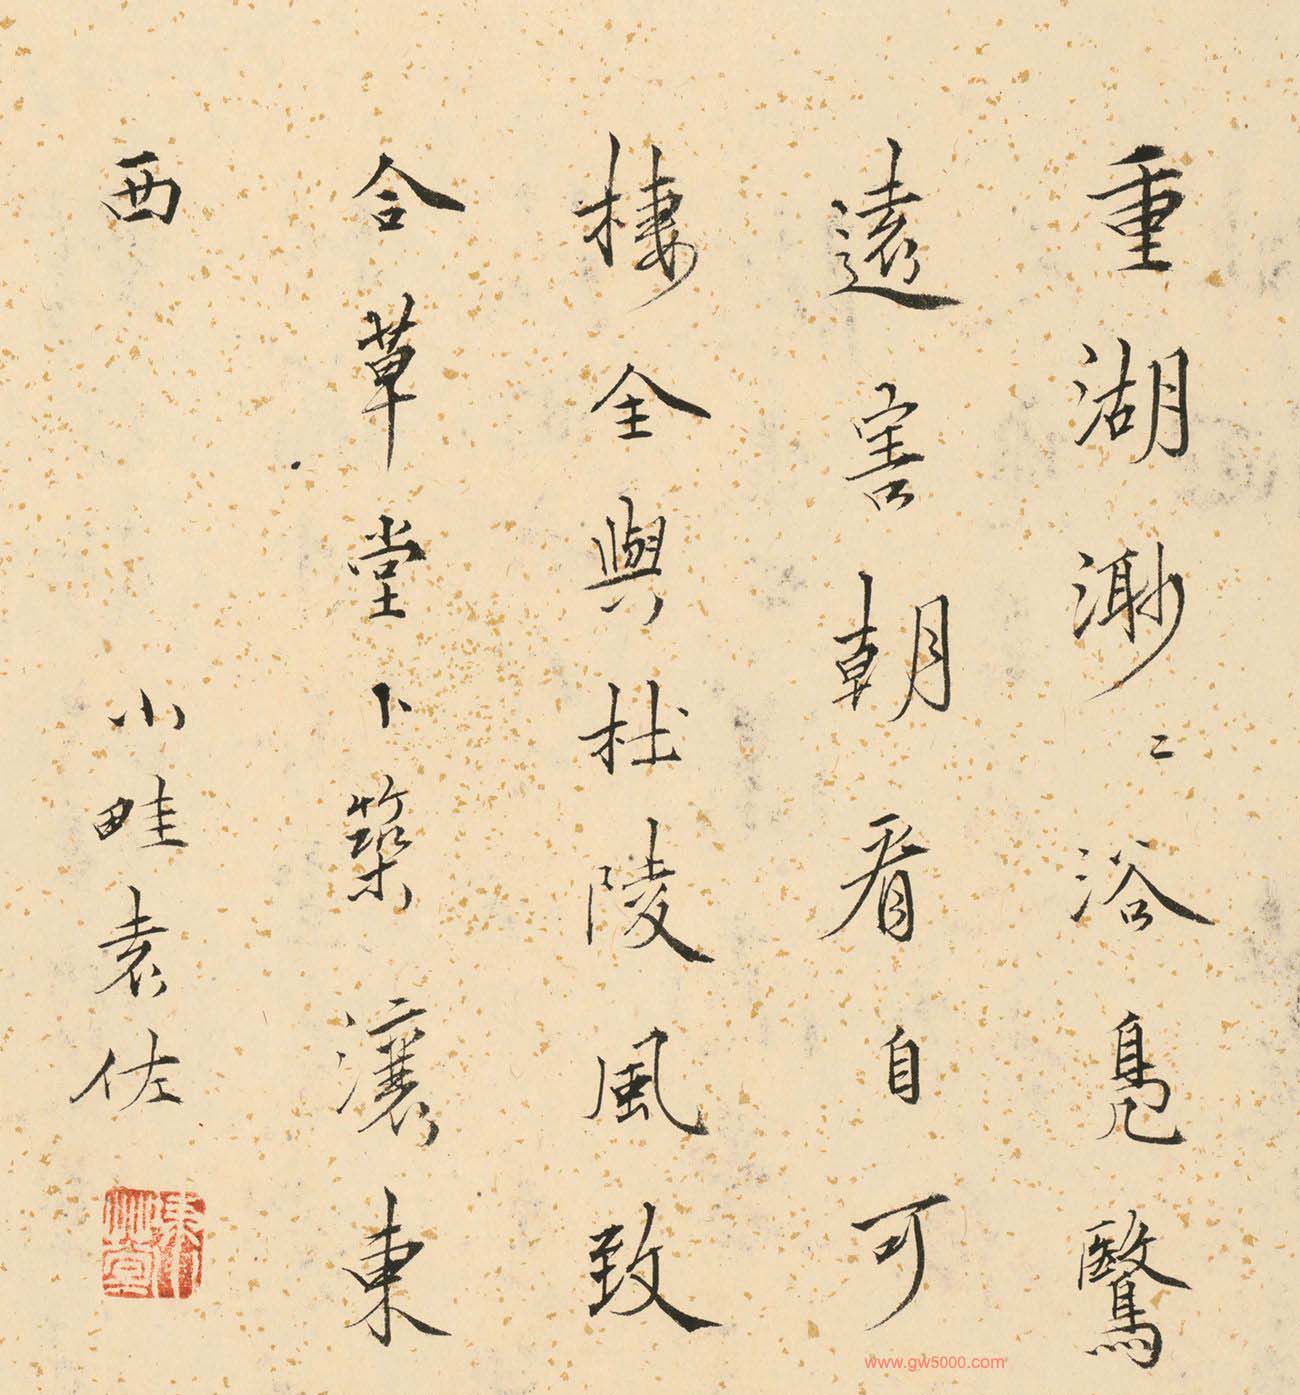 重湖渺〻浴鳧鷖
遠害朝看自可
棲全與杜陵風致
合草堂卜築瀼東
西
小畦袁佐
www.gw5000.com